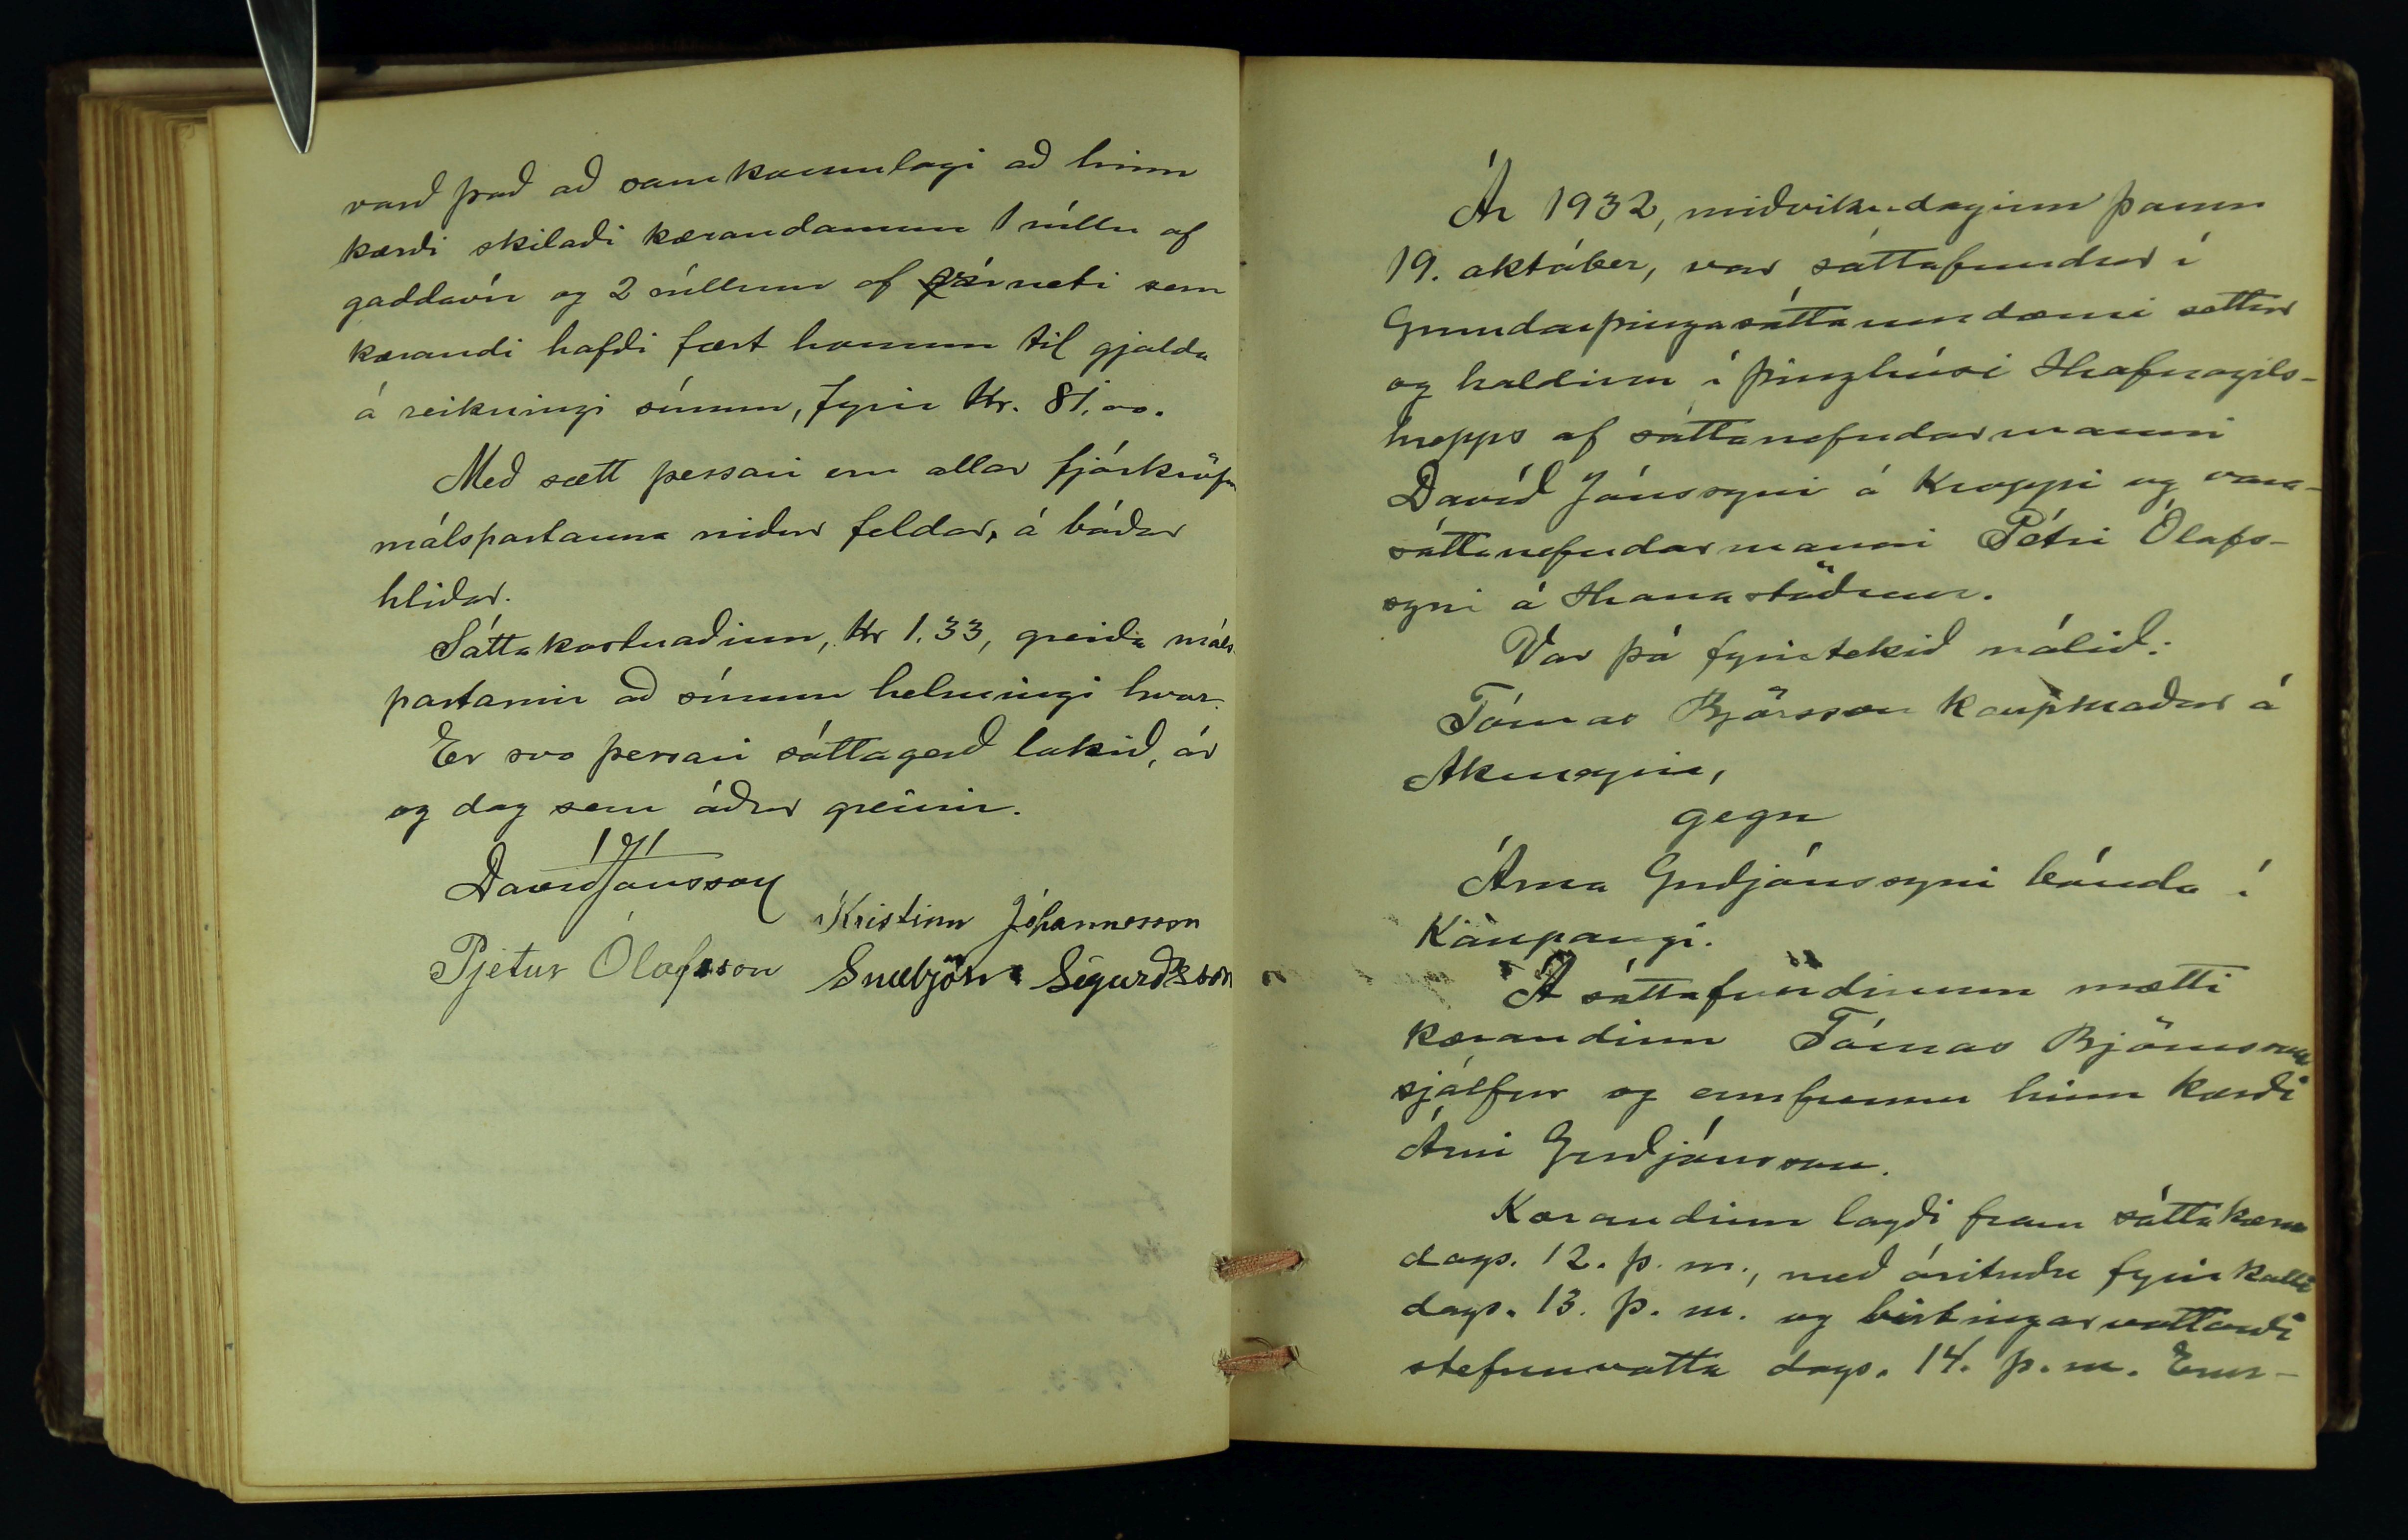 varð það að samkomulagi að hinn
kærði skilaði kærandanum 1 rúllu af
gaddavír og 2 rúllum af vírneti sem
kærandi hafði fært honum til gjalda
á reikningi sínum, fyrir Kr. 81.00.
Með sætt þessari eru allar fjárkröfur
málspartanna niður feldar, á báðar
hliðar.
Sáttakostnaðinn, Kr 1.33, greiða máls-
partarnir að sínum helmingi hvor.
Er svo þessari sáttagerð lokið, ár
og dag sem áður greinir.
Davíð Jónsson
Kristinn Jóhannesson
Pjetur Ólafsson Snæbjörn Sigurðsson
Ár 1932, miðvikudaginn þann
19. október, var sáttafundur í
Grundarþingasáttaumdæmi settur
og haldinn í þinghúsi Hrafnagils-
hrepps af sáttanefndarmanni
Davíð Jónssyni á Kroppi og vara-
sáttanefndarmanni Pétri Ólafs-
syni á Hranastöðum.
Var þá fyrirtekið málið:
Tómas Björnsson kaupmaður á
Akureyri,
gegn
Árna Guðjónssyni bónda í
Kaupangi.
Á sáttafundinum mætti
kærandinn Tómas Björnsson
sjálfur og ennfremur hinn kærði
Árni Guðjónsson.
Kærandinn lagði fram sáttakæru
dags. 12. þ. m., með árituðu fyrirkalli
dags. 13. þ. m. og birtingarvottorði
stefnuvotta dags. 14. þ. m. Enn-